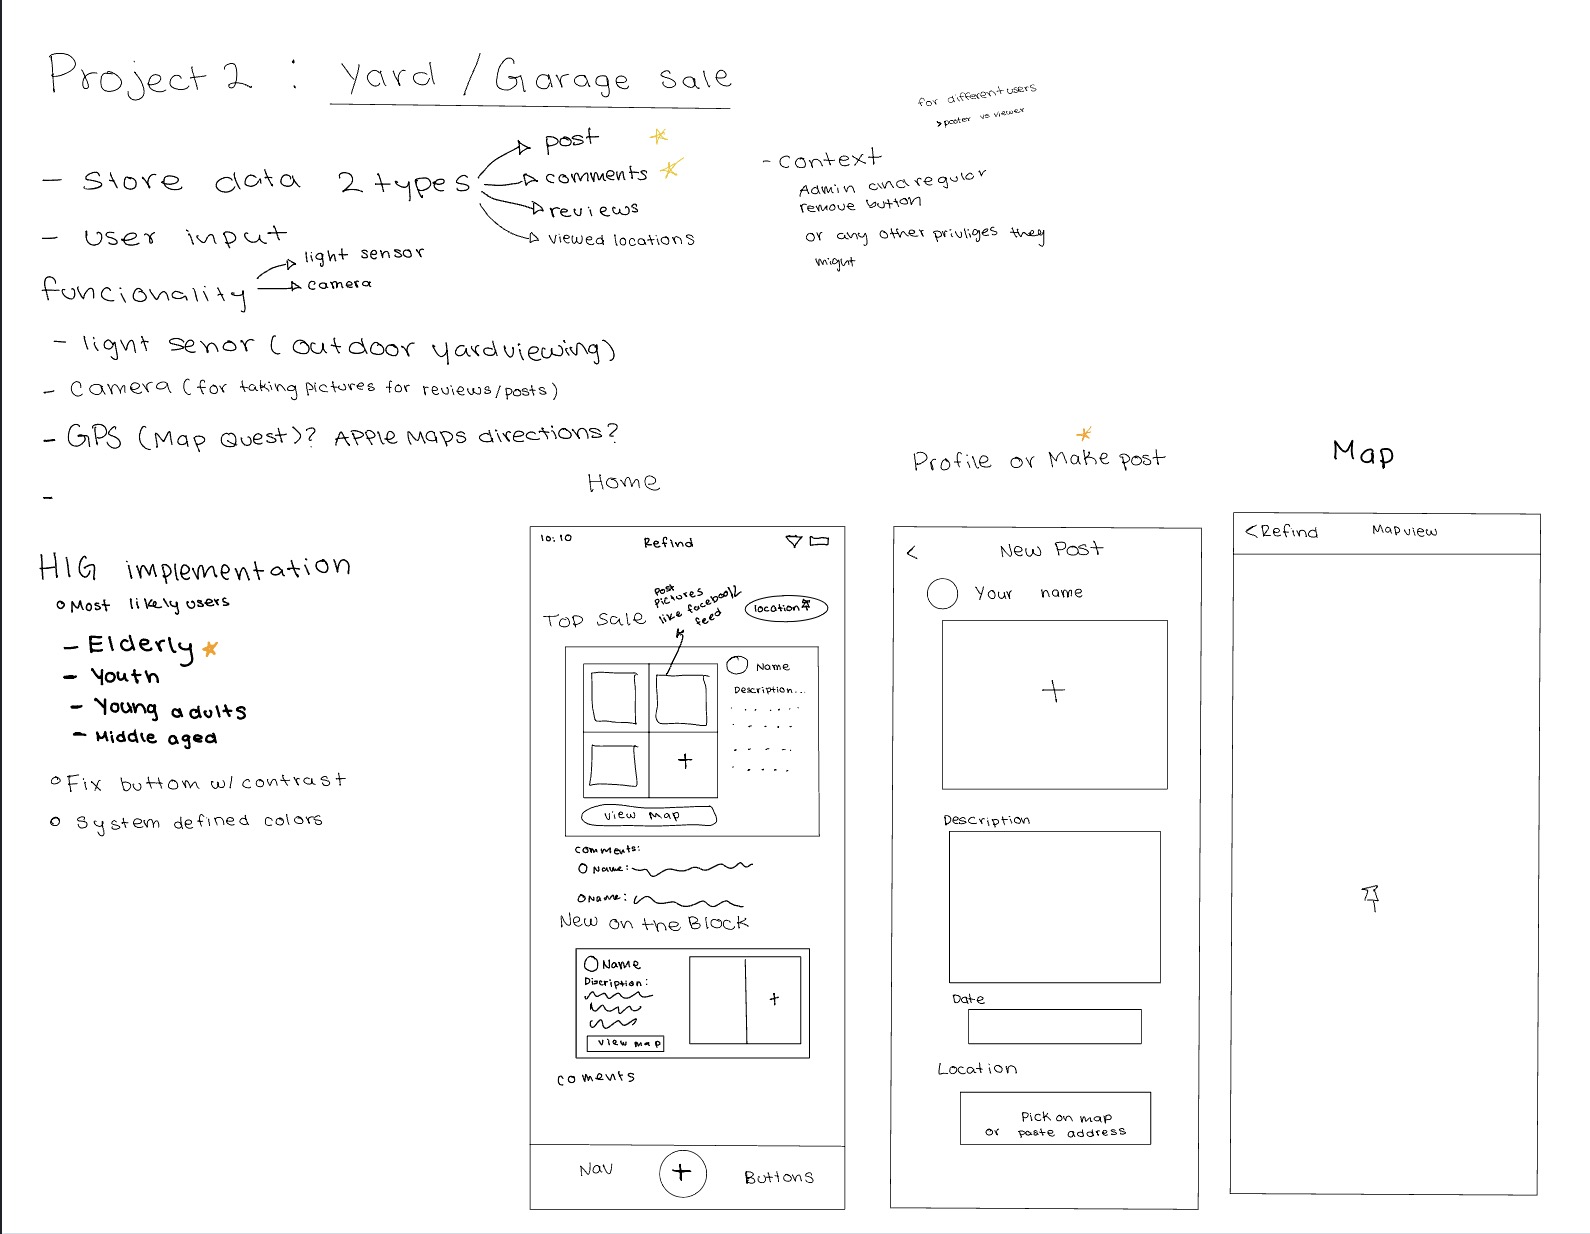 Project 2 : Yard / Garage Sale
- Store data 2 types
post
comments
reviews
viewed locations
- User input
funcionality
light sensor
camera
- lignt senor (outdoor yard viewing)
- Camera (for taking pictures for reviews/posts)
- GPS (Map Quest)? Apple Maps directions?
-
for different users
> poster vs viewer
- Context
Admin and regular
remove button
or any other priviliges they
might
HIG implementation
Most likely users
- Elderly
- Youth
- Young adults
- Middle aged
Fix buttom w/ contrast
System defined colors
Home
10:10
Refind
Top Sale
Post
Pictures
like facebook
feed
location
Name
Description...
+
View Map
comments:
Name:
Name:
New on the Block
Name
Discription:
+
View Map
coments
Nav
+
Buttons
Profile or Make post
<
New Post
Your name
+
Description
Date
Location
Pick on map
or paste address
Map
< Refind
Map view